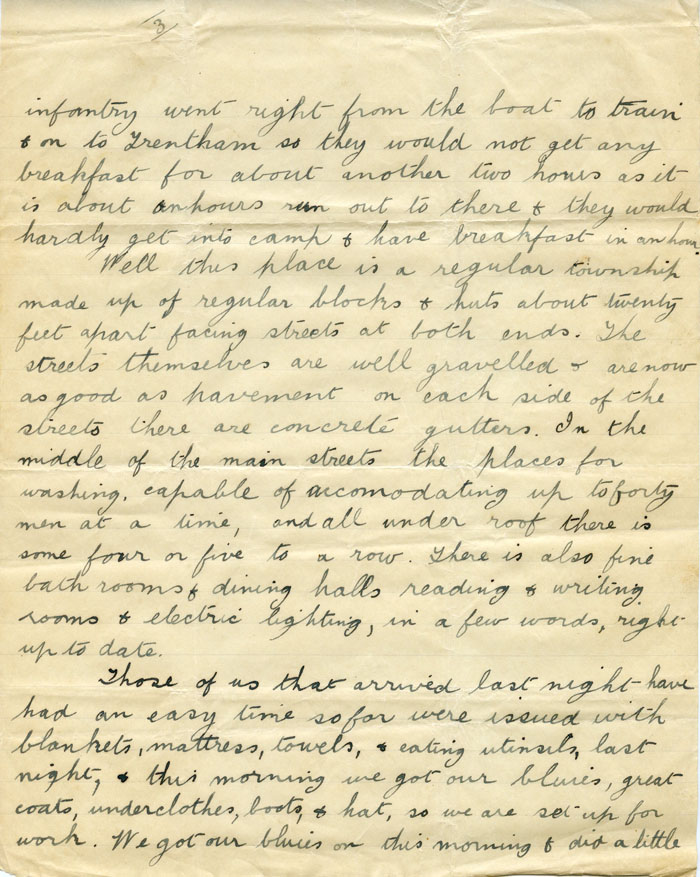 3
infantry went right from the boat to train
& on to Trentham so they would not get any
breakfast for about another two hours as it
is about an hours run out to there & they would
hardly get into camp & have breakfast in an hour.
Well this place is a regular township
made up of regular blocks & huts about twenty
feet apart facing streets at both ends. The
streets themselves are well gravelled & are now
as good as pavement on each side of the
streets there are concrete gutters. In the
middle of the main streets the places for
washing, capable of accomodating up to forty
men at a time, and all under roof there is
some four or five to a row. There is also fine
bath rooms & dining halls reading & writing
rooms & electric lighting, in a few words, right
up to date.
Those of us that arrived last night have
had an easy time so far were issued with
blankets, mattress, towels, & eating utinsils, last
night, & this morning we got our bluies, great
coats, underclothes, boots, & hat, so we are set up for
work. We got our bluies on this morning & did a little